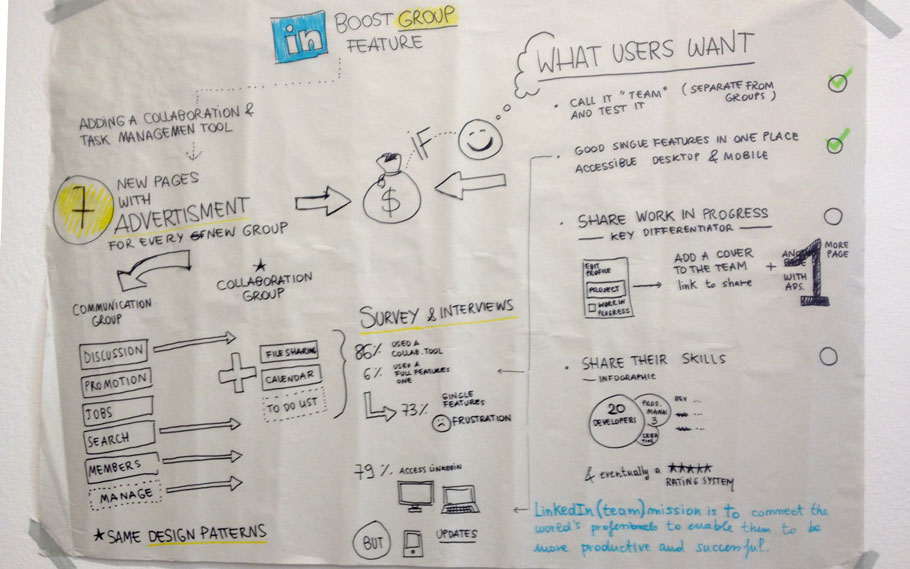 in
BOOST GROUP
FEATURE
ADDING A COLLABORATION &
TASK MANAGEMEN TOOL
7
NEW PAGES
WITH
ADVERTISMENT
FOR EVERY NEW GROUP
$
IF
COMMUNICATION
GROUP
DISCUSSION
PROMOTION
JOBS
SEARCH
MEMBERS
MANAGE
★ SAME DESIGN PATTERNS
★
COLLABORATION
GROUP
+
FILE SHARING
CALENDAR
TO DO LIST
SURVEY & INTERVIEWS
86% USED A
COLLAB. TOOL
6% USED A
FULL FEATURES
ONE
73% SINGLE
FEATURES
FRUSTRATION
79% ACCESS LINKEDIN
BUT
UPDATES
WHAT USERS WANT
• CALL IT "TEAM" (SEPARATE FROM
AND TEST IT GROUPS)
GOOD SINGLE FEATURES IN ONE PLACE
ACCESSIBLE DESKTOP & MOBILE
• SHARE WORK IN PROGRESS
— KEY DIFFERENTIATOR —
EDIT
PROFILE
PROJECT
WORK IN
PROGRESS
ADD A COVER
TO THE TEAM
link to share
+
1
MORE
PAGE
WITH
ADS.
• SHARE THEIR SKILLS
— INFOGRAPHIC
20
DEVELOPERS
3
& eventually a ★★★★★
RATING SYSTEM
LinkedIn (team) mission is to connect the
world's professionals to enable them to be
more productive and successful.